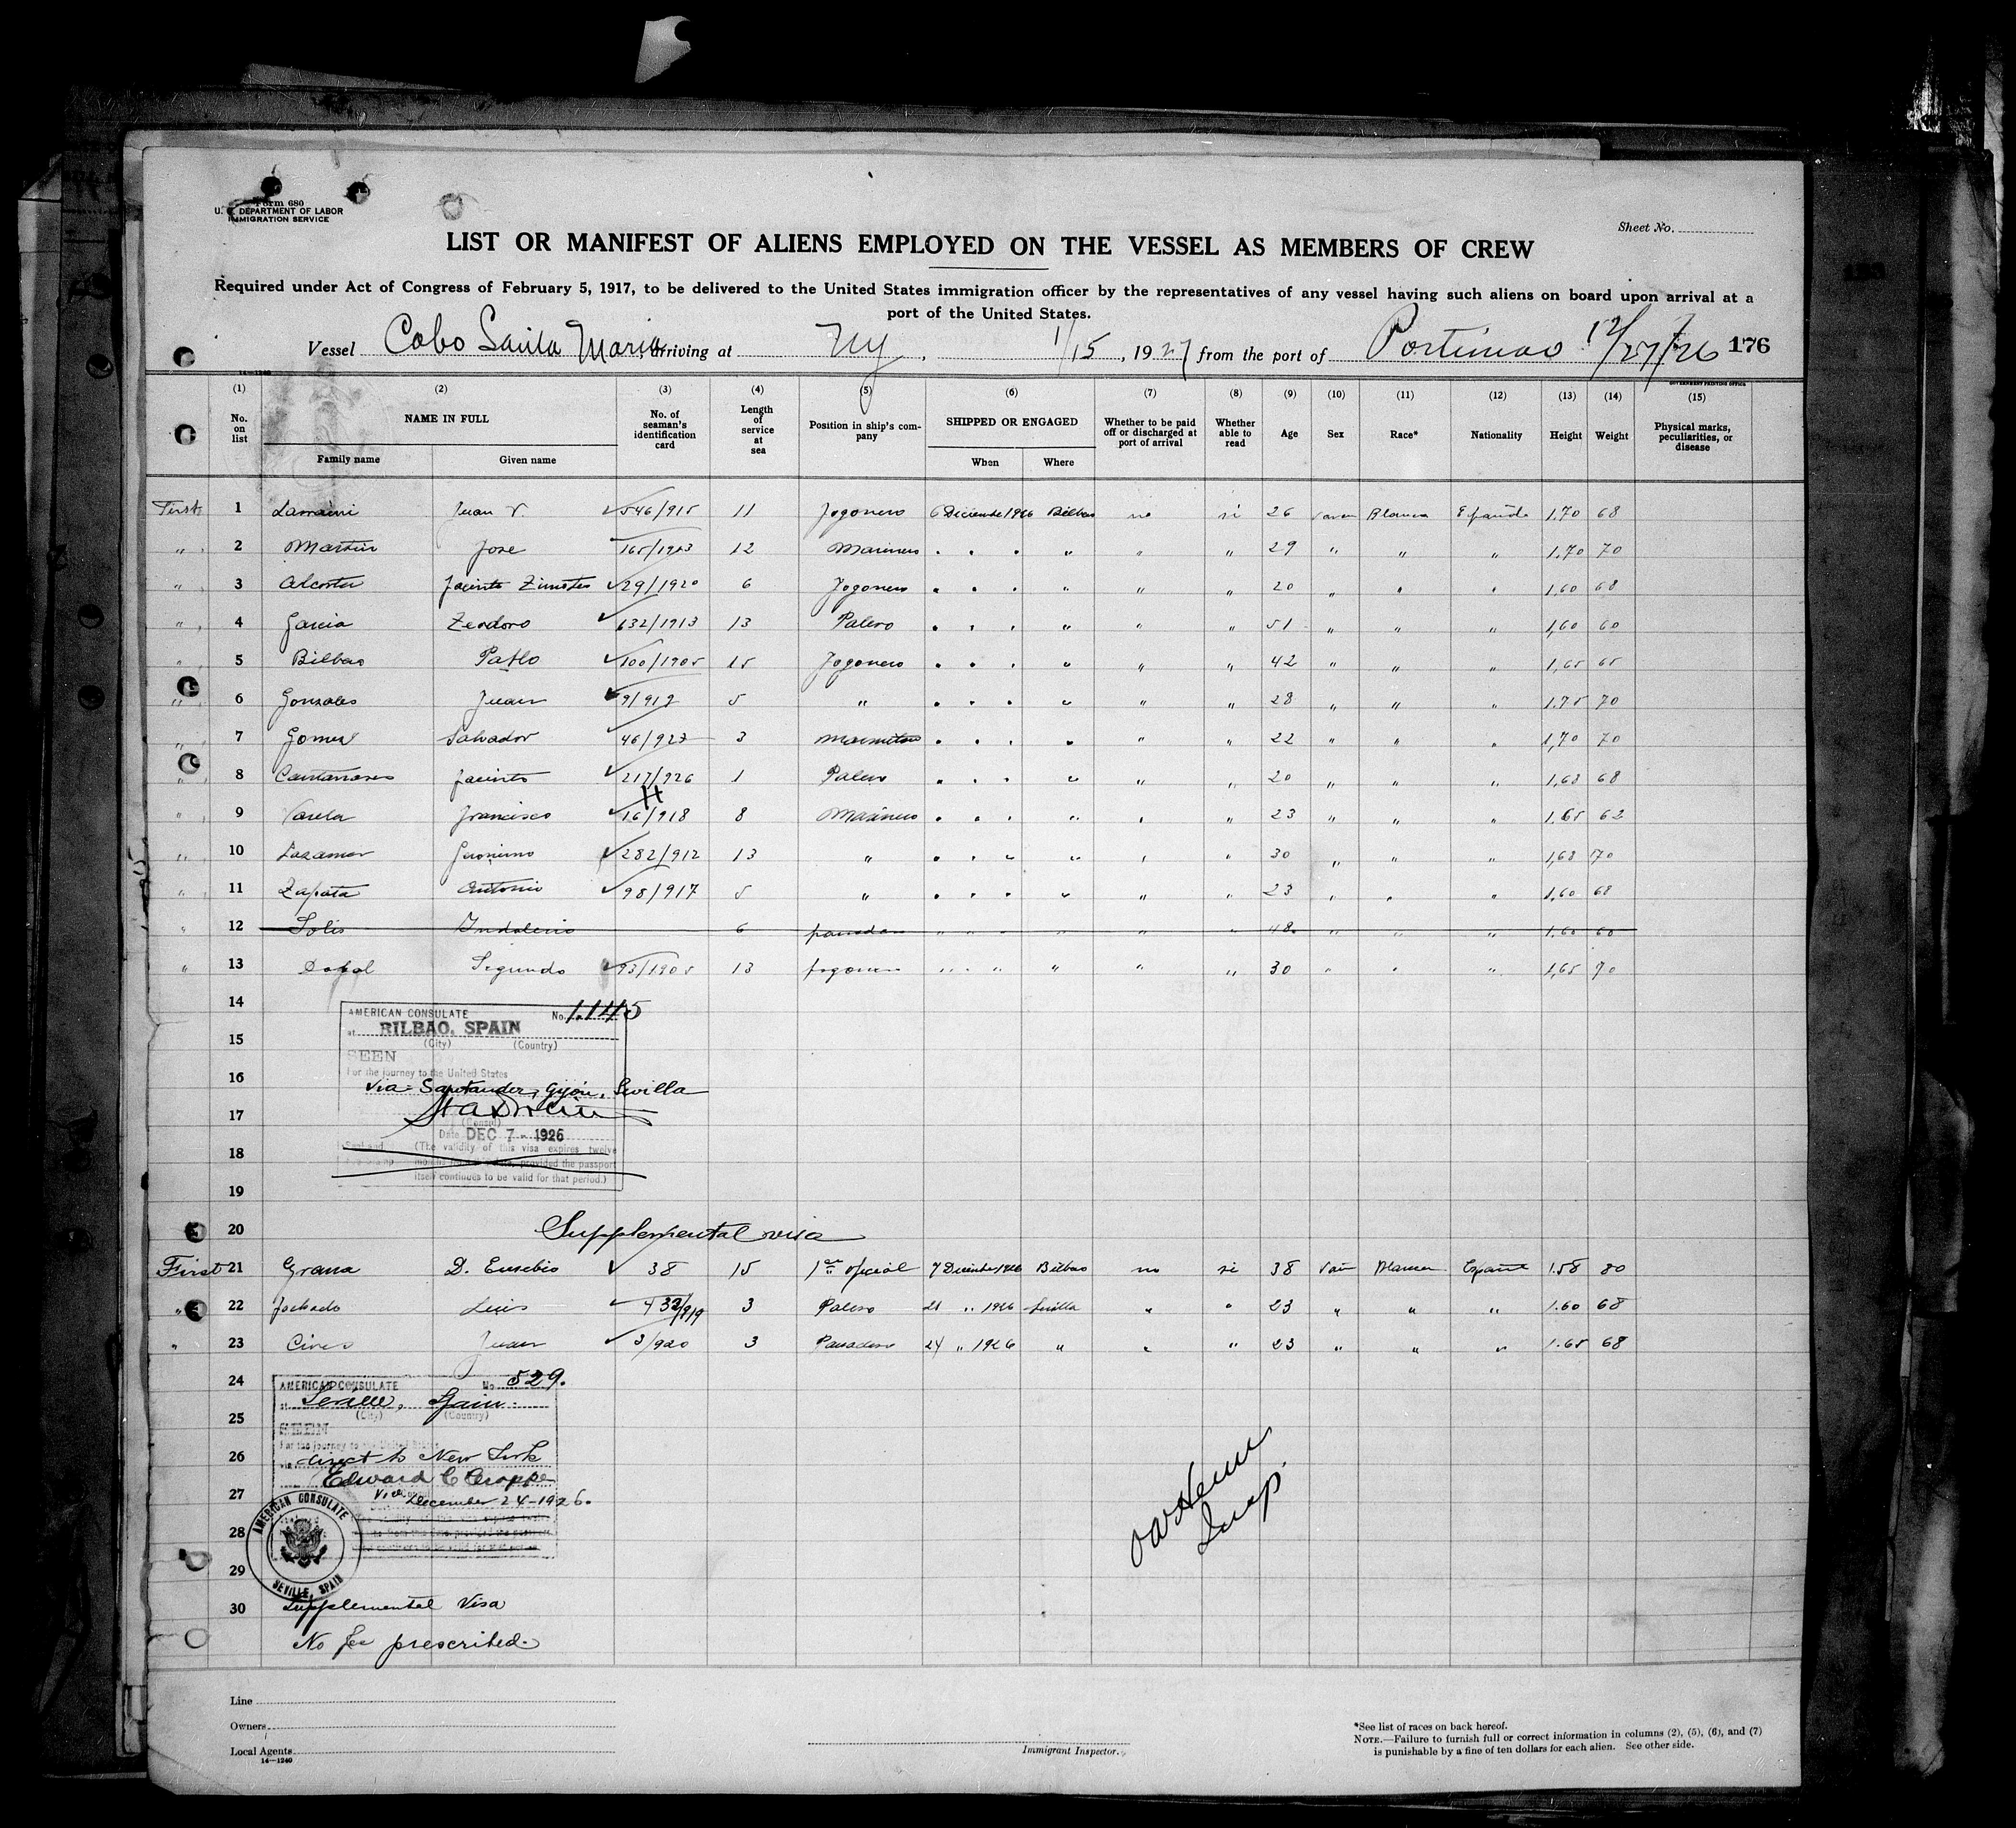 Form 680
U. S. DEPARTMENT OF LABOR
IMMIGRATION SERVICE
Sheet No.
LIST OR MANIFEST OF ALIENS EMPLOYED ON THE VESSEL AS MEMBERS OF CREW
Required under Act of Congress of February 5, 1917, to be delivered to the United States immigration officer by the representatives of any vessel having such aliens on board upon arrival at a
port of the United States.
Vessel Cabo Santa Maria, arriving at NY, 1/15, 1927 from the port of Portimao 12/27/26 176
14—1240
GOVERNMENT PRINTING OFFICE
(1) (2) (3) (4) (5) (6) (7) (8) (9) (10) (11) (12) (13) (14) (15)
No. on list NAME IN FULL Family name Given name No. of seaman's identification card Length of service at sea Position in ship's company SHIPPED OR ENGAGED When Where Whether to be paid off or discharged at port of arrival Whether able to read Age Sex Race* Nationality Height Weight Physical marks, peculiarities, or disease
First 1 Juan V. 546/915 11 Fogonero 6 Diciembre 1926 Bilbao no si 26 Blanca España 1.70 68
" 2 Martin Jose 165/1923 12 Marinero . . . " " " 29 " " " 1.70 70
" 3 Jacinto 29/1920 6 Fogonero . . . " " " 20 " " " 1,60 68
" 4 Garcia Teodoro 632/1913 13 Palero . . . " " " 51 " " " 1,60 60
" 5 Bilbao Pablo 100/1905 15 Fogonero . . . " " " 42 " " " 1,65 65
" 6 Gonzales Juan 9/912 5 " . . . " " " 28 " " " 1.75 70
" 7 Gomez Salvador 46/923 3 Marmiton . . . " " " 22 " " " 1,70 70
" 8 Jacinto 217/926 1 Palero . . . " " " 20 " " " 1,68 68
H
" 9 Varela Francisco 16/918 8 Marinero . . . " " " 23 " " " 1.65 62
" 10 Geronimo 282/912 13 " . . " " " " 30 " " " 1,68 70
" 11 Zapata Antonio 98/917 5 " . . . " " " 23 " " " 1,60 68
" 12 Solis Indalecio 6 panadero " " " " " " 48 " " " 1.60 60
" 13 Segundo 93/1905 13 fogonero " " " " " " 30 " " " 1,65 70
14
AMERICAN CONSULATE No. 1145
15
at BILBAO, SPAIN
(City) (Country)
SEEN
16
For the journey to the United States
Via: Santander, Gijón, Sevilla
17
(Consul)
Date DEC 7 - 1926
18
(The validity of this visa expires twelve
months from this date, provided the passport
itself continues to be valid for that period.)
19
20 Supplemental visa
First 21 Grana D. Eusebio 38 15 1er oficial 7 Diciembre 1926 Bilbao no si 38 Blanca España 1.58 80
" 22 Luis 432/919 3 Palero 21 " 1926 Sevilla " " 23 " " " 1.60 68
" 23 Juan 3/920 3 Panadero 24 " 1926 " " " 23 " " " 1.65 68
24
AMERICAN CONSULATE No. 529.
at Seville, Spain.
25
(City) (Country)
SEEN
For the journey to the United States
26
via direct to New York
Edward C
27
Vice
December 24-1926.
28
AMERICAN CONSULATE
SEVILLE, SPAIN
29
30 Supplemental Visa
No fee prescribed.
Insp.
Line
Owners
Local Agents
14—1240
Immigrant Inspector.
*See list of races on back hereof.
NOTE.—Failure to furnish full or correct information in columns (2), (5), (6), and (7)
is punishable by a fine of ten dollars for each alien. See other side.